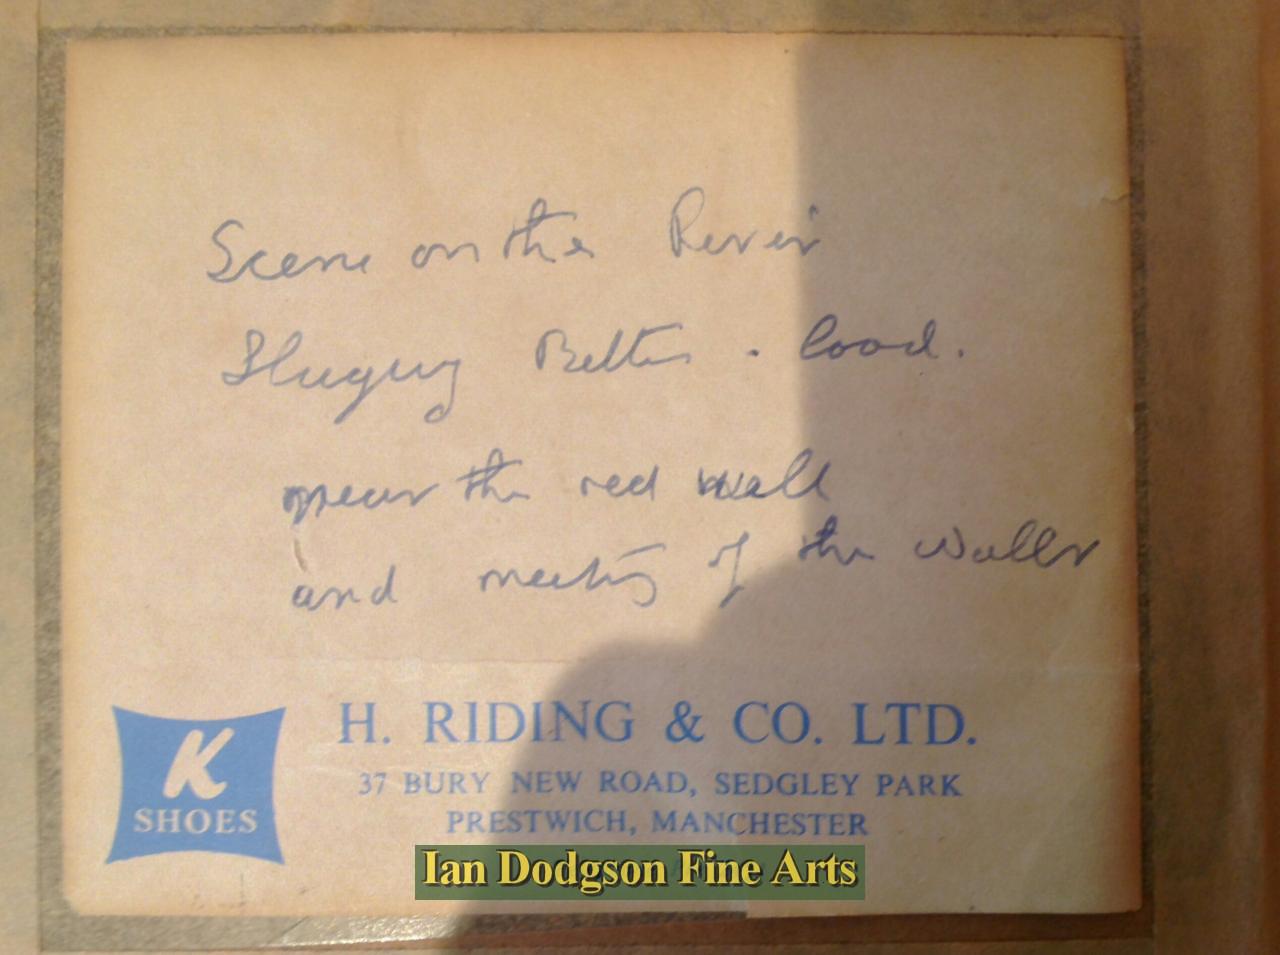 Scene on the River
Bettws - Coed.
near the red wall
and meeting of the Walls
K
SHOES
H. RIDING & CO. LTD.
37 BURY NEW ROAD, SEDGLEY PARK
PRESTWICH, MANCHESTER
Ian Dodgson Fine Arts